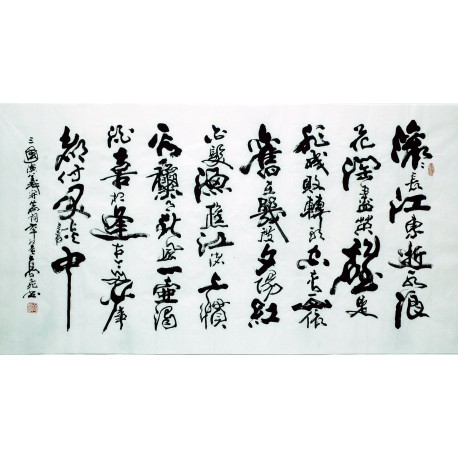 滚滚長江東逝水浪
花淘盡英雄是
非成敗轉頭空青山依
舊在幾度夕陽紅
白髮漁樵江渚上慣
看秋月春風一壺濁
酒喜相逢古今多少事
都付笑談中
三國演義開篇詞